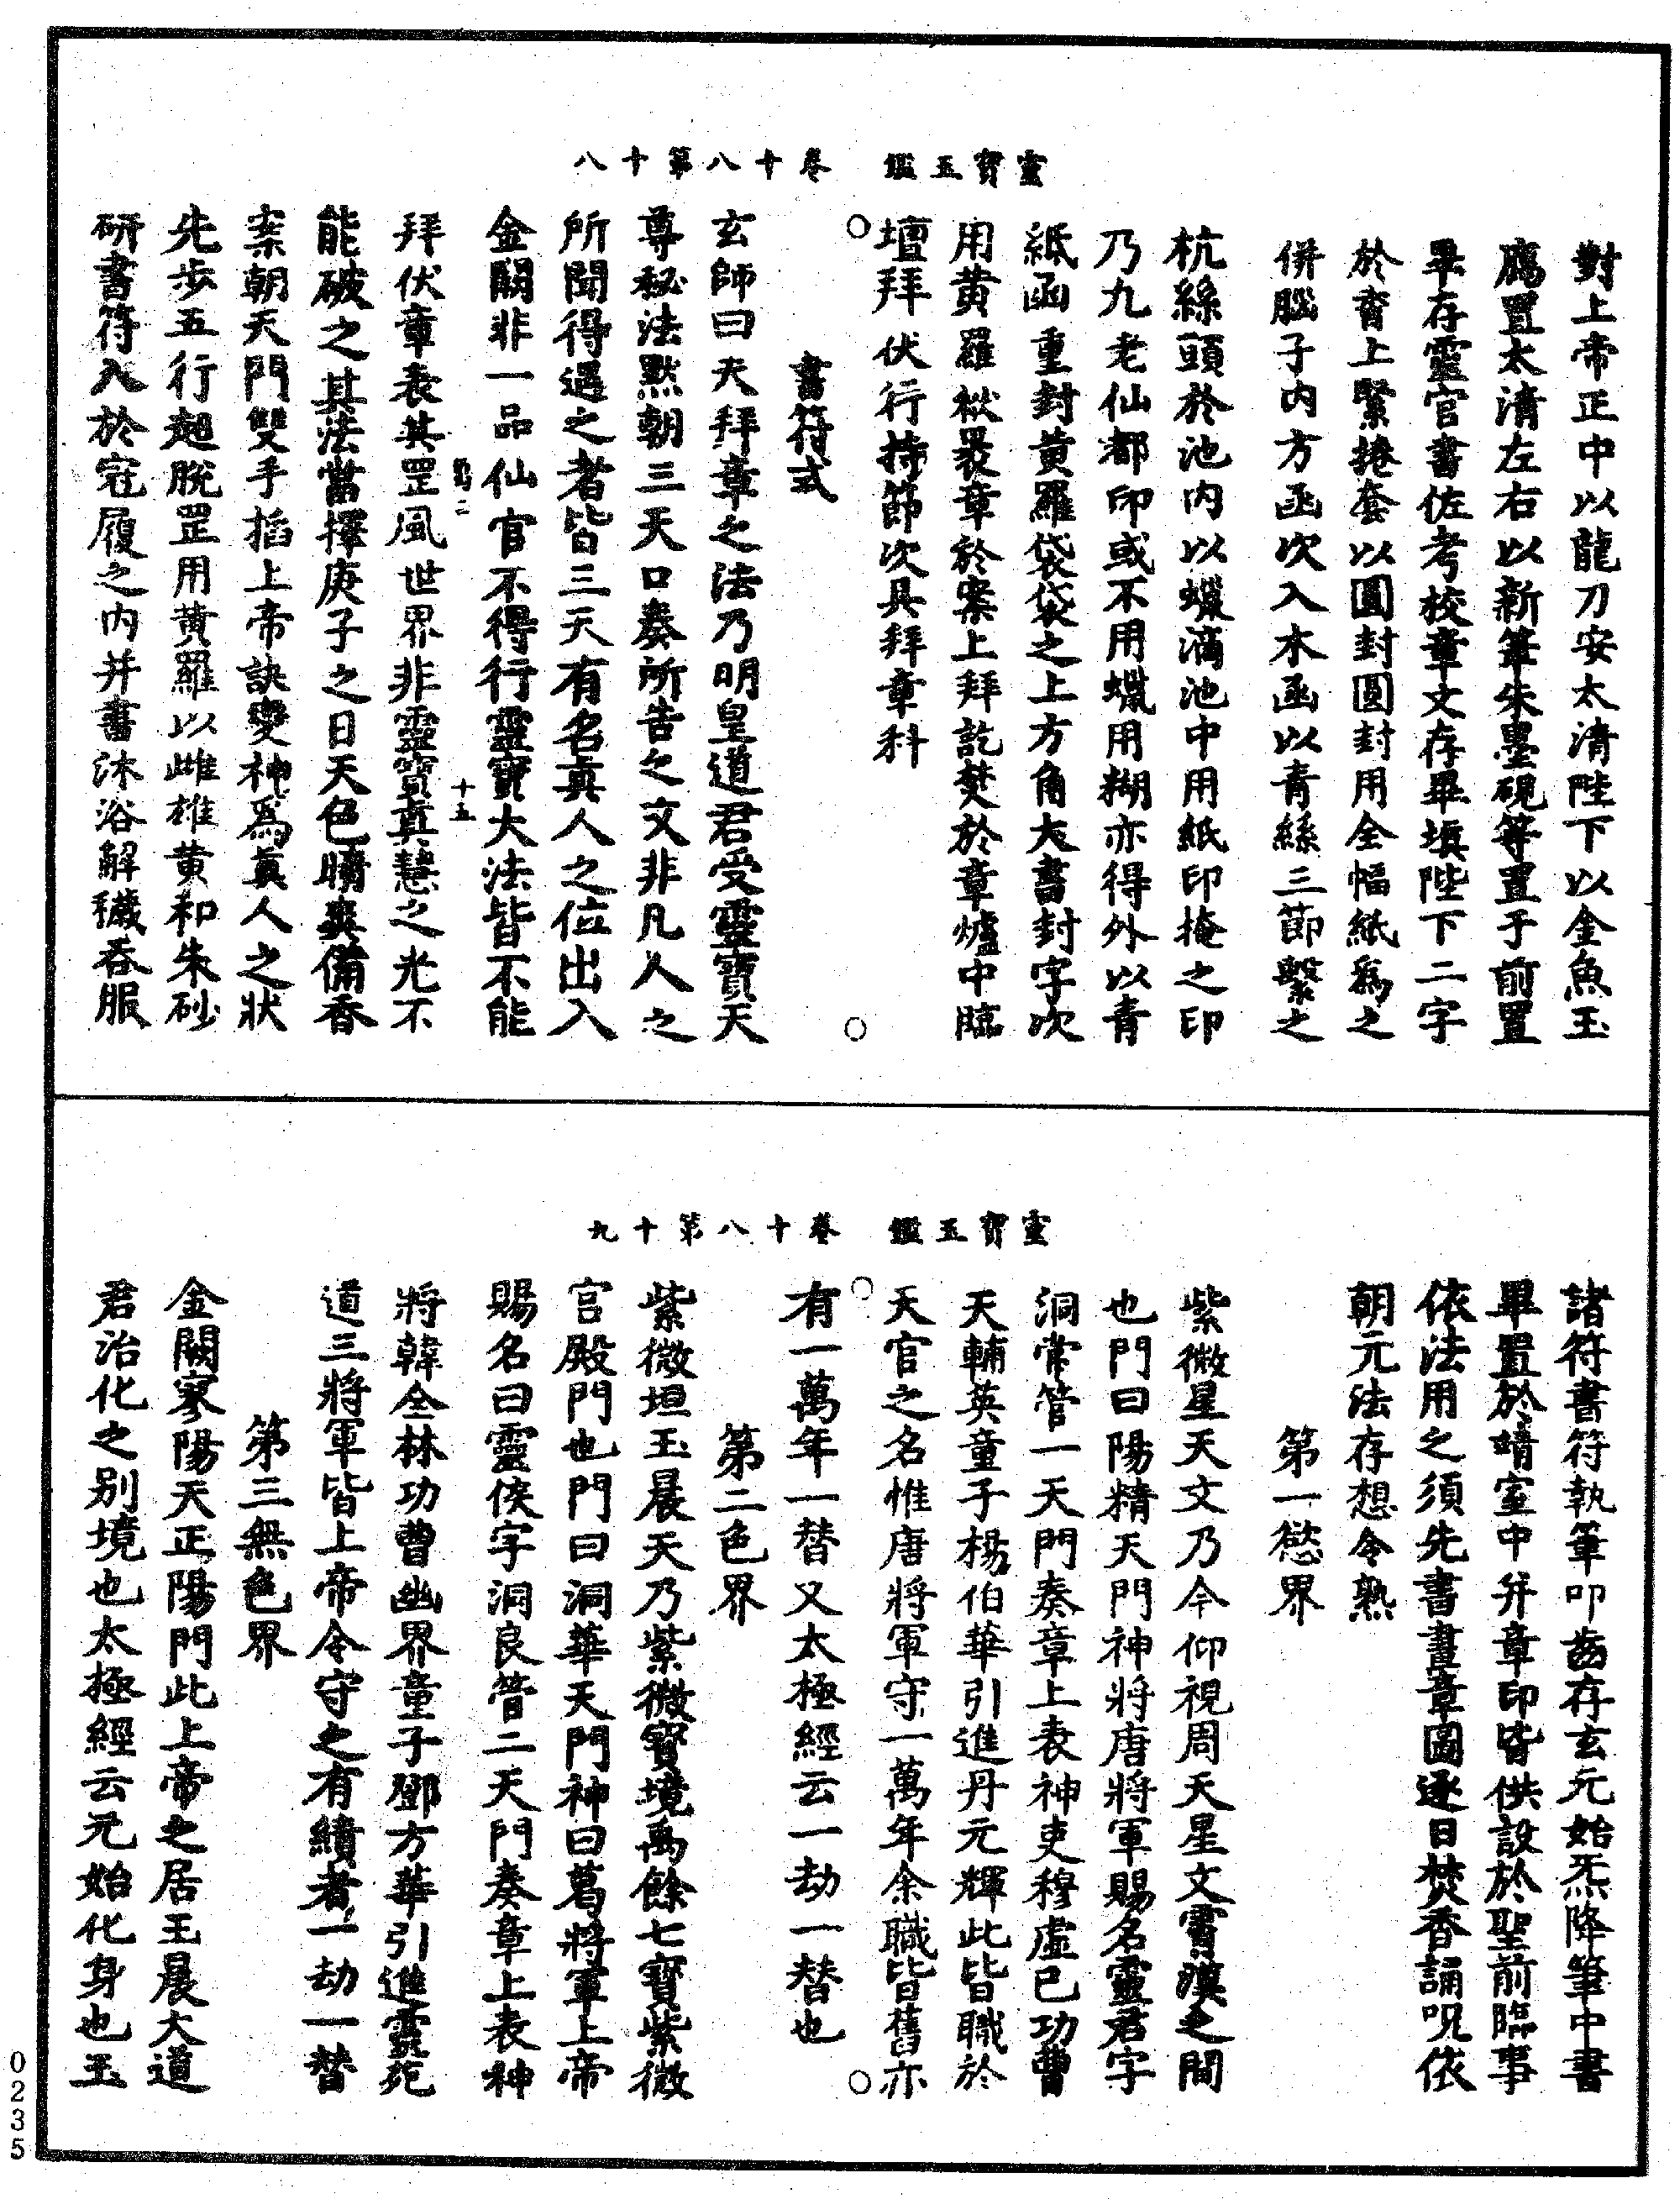 靈寶玉鑑　卷十八第十八
對上帝正中以龍刀安太清陛下以金魚玉
鴈置太清左右以新筆朱墨硯等置于前置
畢存靈官書佐考校章文存畢填陛下二字
於脊上緊捲套以圓封圓封用全幅紙為之
併腦子内方函次入木函以青絲三節繫之
杭絲頭於池内以蠟滴池中用紙印掩之印
乃九老仙都印或不用蠟用糊亦得外以青
紙函重封黄羅袋袋之上方角大書封字次
用黄羅袱裹章於案上拜訖焚於章爐中臨
壇拜伏行持節次具拜章科
書符式
玄師曰天拜章之法乃明皇道君受靈寶天
尊秘法默朝三天口奏所告之文非凡人之
所聞得遇之者皆三天有名真人之位出入
金闕非一品仙官不得行靈寶大法皆不能
十五
拜伏章表其罡風世界非靈寶真慧之光不
能破之其法當擇庚子之日天色晴爽備香
案朝天門雙手掐上帝訣變神為真人之狀
先步五行趯脫罡用黄羅以雌雄黄和朱砂
研書符入於冠履之内并書沐浴解穢吞服
靈寶玉鑑　卷十八第十九
諸符書符執筆叩齒存玄元始炁降筆中書
畢置於靖室中并章印皆供設於聖前臨事
依法用之須先書畫章圖逐日焚香誦呪依
朝元法存想令熟
第一慾界
紫微星天文乃今仰視周天星文霄漢之間
也門曰陽精天門神將唐將軍賜名靈君字
洞常管一天門奏章上表神吏穆虛已功曹
天輔英童子楊伯華引進丹元輝此皆職於
天官之名惟唐將軍守一萬年余職皆舊亦
有一萬年一替又太極經云一劫一替也
第二色界
紫微垣玉晨天乃紫微寶境萬餘七寶紫微
宫殿門也門曰洞華天門神曰葛將軍上帝
賜名曰靈侯字洞良管二天門奏章上表神
將韓全林功曹幽界童子鄧方華引進靈苑
道三將軍皆上帝令守之有績者一劫一替
第三無色界
金闕寥陽天正陽門此上帝之居玉晨大道
君治化之别境也太極經云元始化身也玉
0235